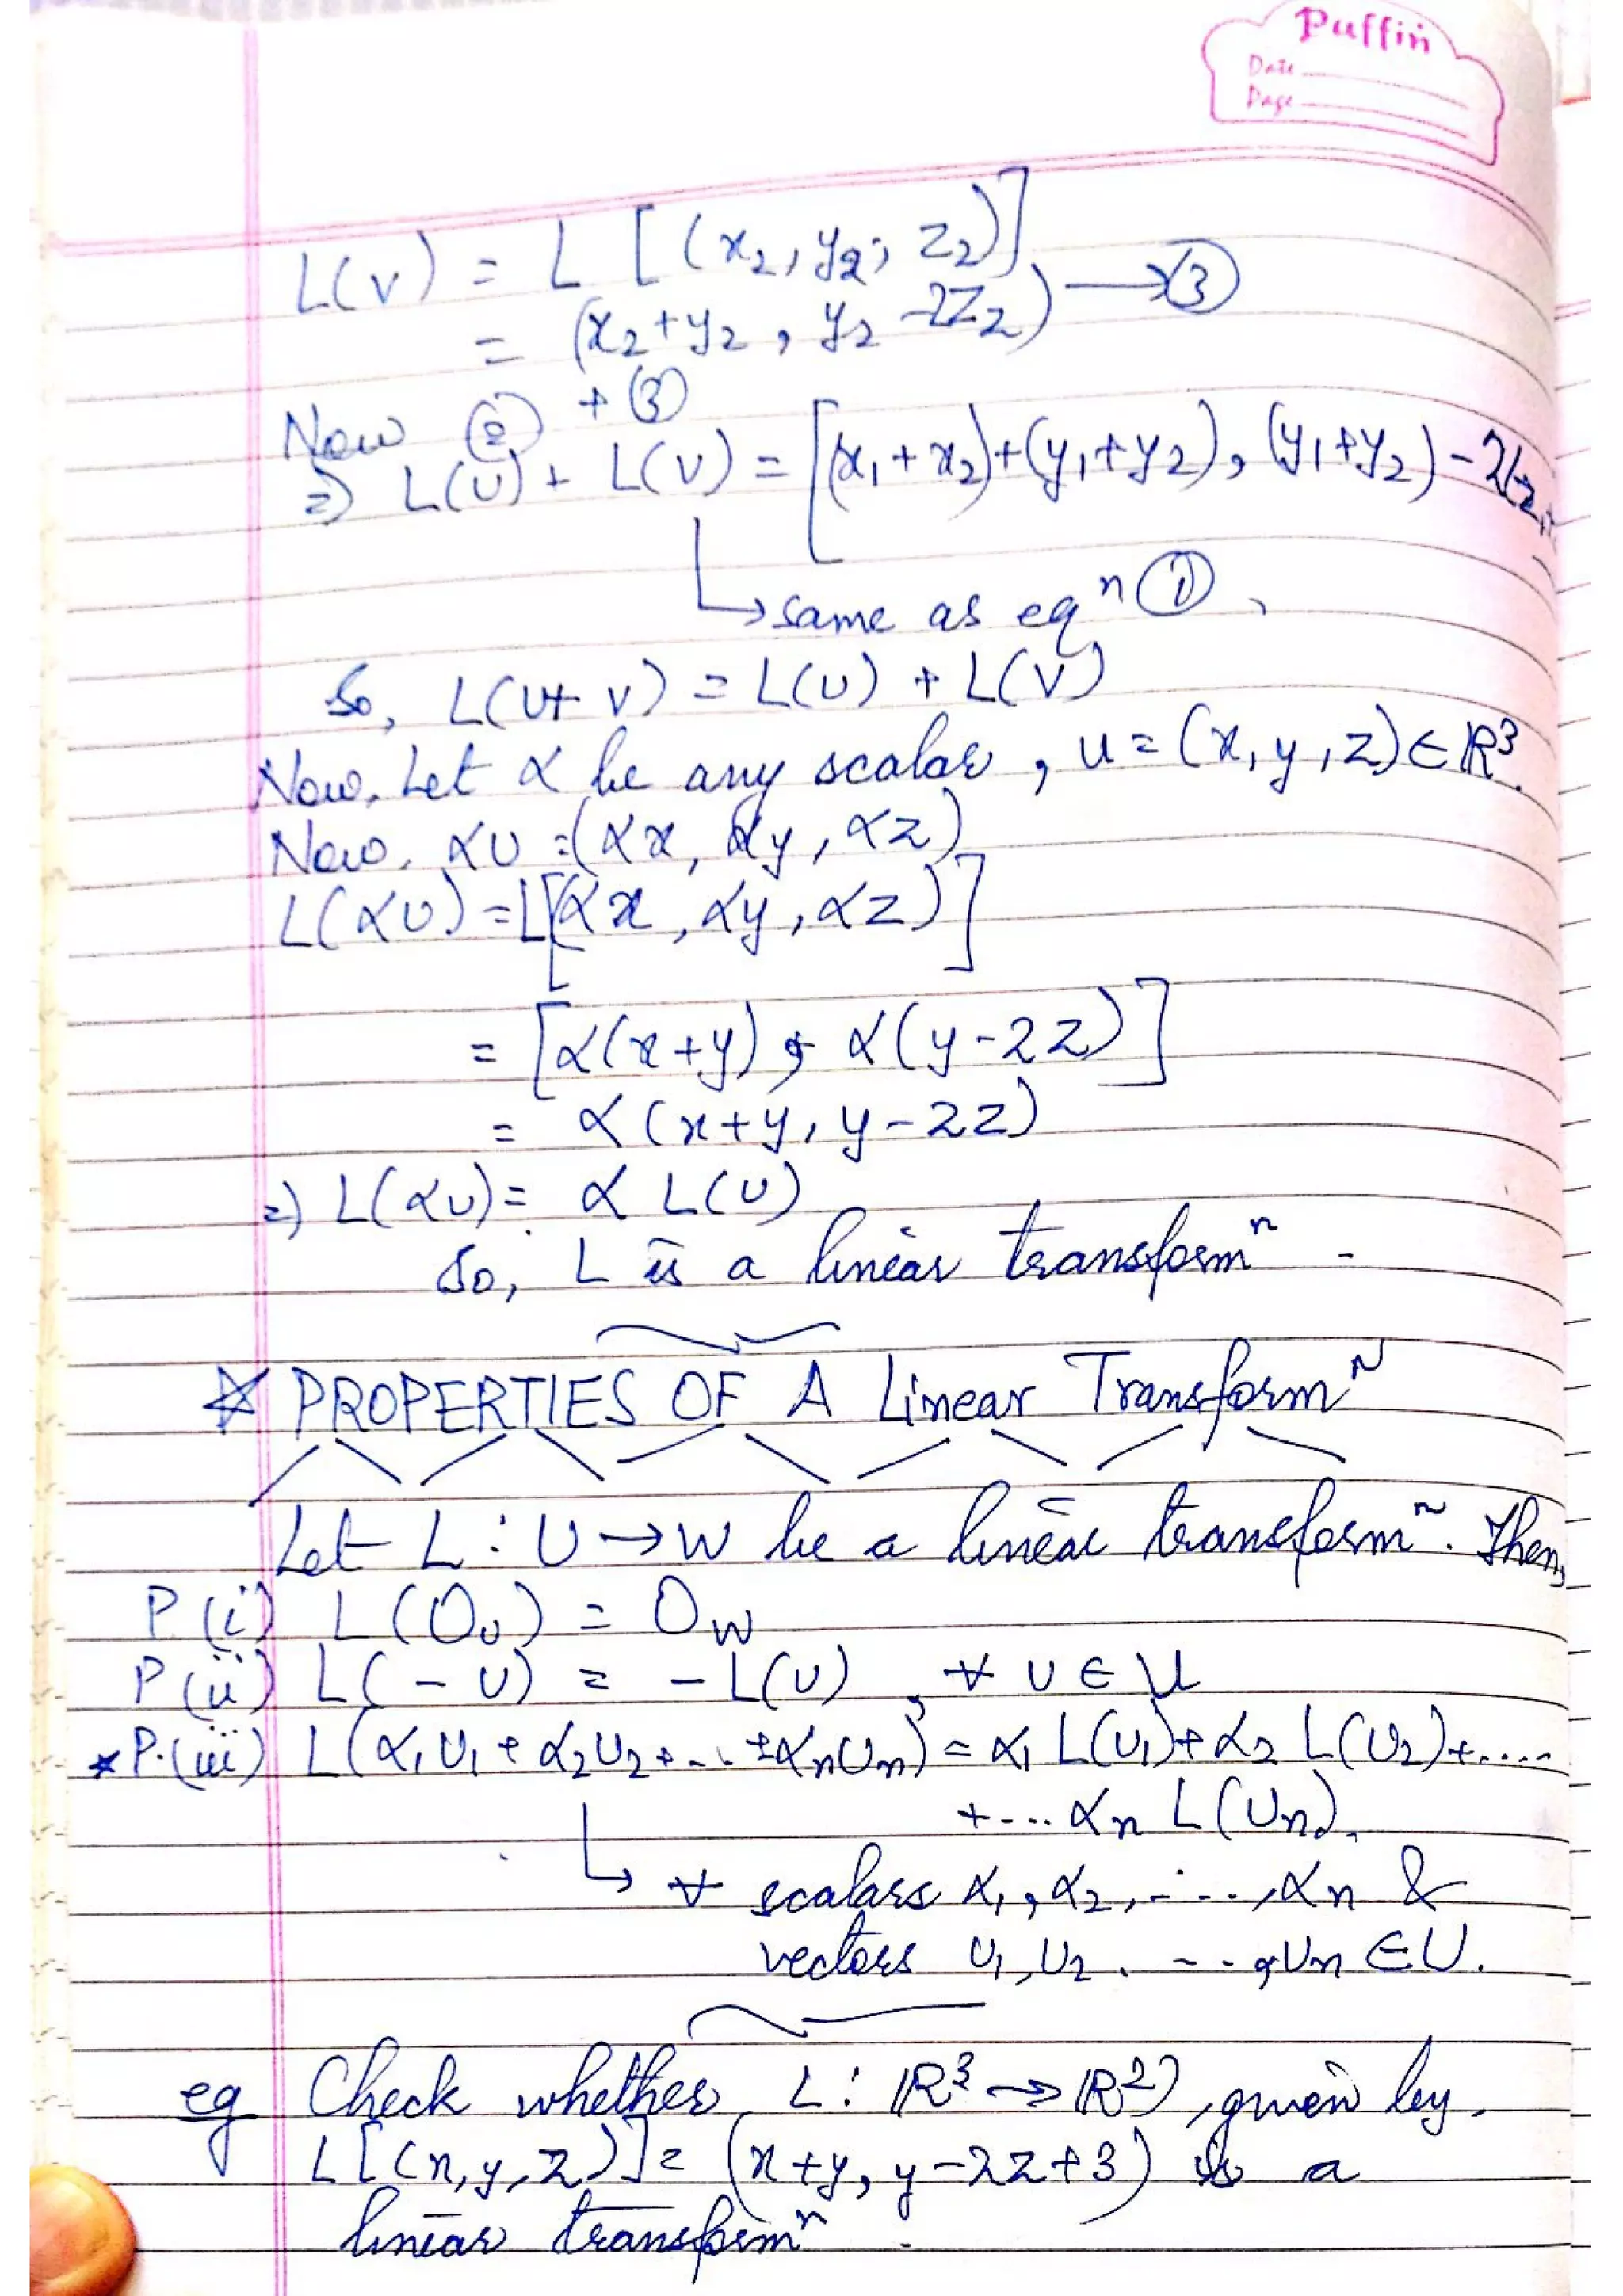 Puffin
Date
Page
L(v) = L [(x₂, y₂, z₂)]
= (x₂+y₂, y₂-2z₂) → ③
Now ② + ③
⇒ L(u) + L(v) = [(x₁+x₂)+(y₁+y₂), (y₁+y₂)-2(z₁+
↳ same as eqⁿ ①.
So, L(u+v) = L(u) + L(v)
Now, Let α be any scalar, u = (x, y, z) ∈ ℝ³.
Now, αu = (αx, αy, αz)
L(αu) = L[(αx, αy, αz)]
= [α(x+y), α(y-2z)]
= α(x+y, y-2z)
⇒ L(αu) = α L(u)
So, L is a linear transformⁿ.
☆ PROPERTIES OF A Linear Transformᴺ
Let L : U → W be a linear transformⁿ. Then,
P(i) L(0ᵤ) = 0w
P(ii) L(-u) = -L(u), ∀ u ∈ U
* P.(iii) L(α₁u₁ + α₂u₂ + ... + αₙuₙ) = α₁ L(u₁) + α₂ L(u₂) + ....
+ ... αₙ L(uₙ).
↳ ∀ scalars α₁, α₂, ....., αₙ &
vectors u₁, u₂, ..., uₙ ∈ U.
eg Check whether L : ℝ³ → ℝ², given by,
L[(x, y, z)] = (x+y, y-2z+3) is a
linear transformⁿ.